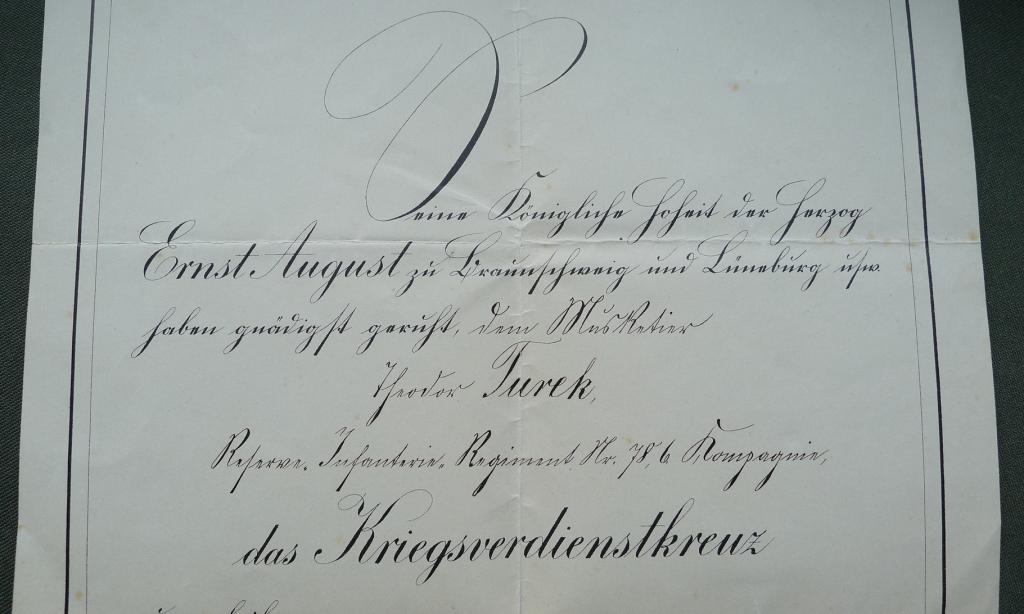 Seine Königliche Hoheit der Herzog
Ernst August zu Braunschweig und Lüneburg usw.
haben gnädigst geruht, dem Musketier
Theodor Turek,
Reserve-Infanterie-Regiment Nr. 78, 6 Kompagnie,
das Kriegsverdienstkreuz